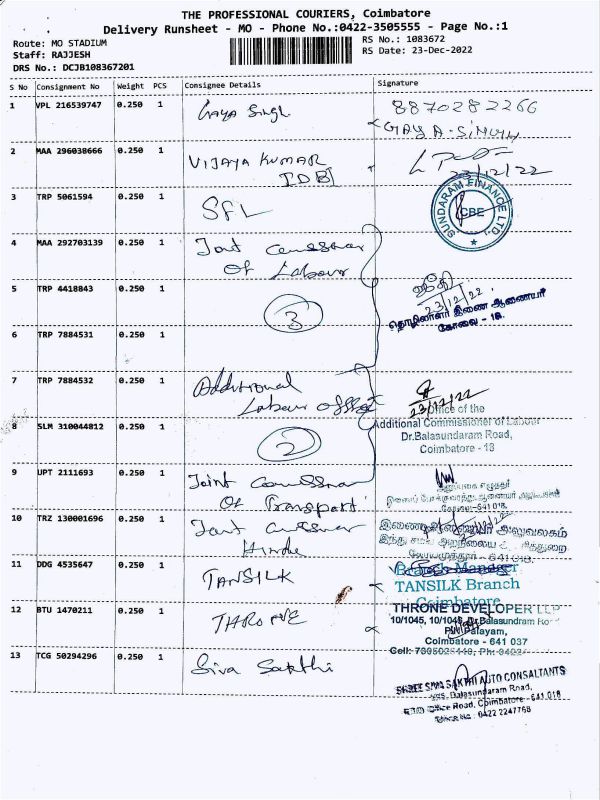 THE PROFESSIONAL COURIERS, Coimbatore
Delivery Runsheet - MO - Phone No.:0422-3505555 - Page No.:1
Route: MO STADIUM
Staff: RAJJESH
DRS No.: DCJB108367201
RS No.: 1083672
RS Date: 23-Dec-2022
S No Consignment No Weight PCS Consignee Details Signature
1 VPL 216539747 0.250 1 Gaya Singh 8870282266
GAYA-SINGH
2 MAA 296038666 0.250 1 VIJAYA KUMAR
IDBI
23/12/22
3 TRP 5061594 0.250 1 SFL
SUNDARAM FINANCE LTD.
CBE
4 MAA 292703139 0.250 1 Joint
Of Labour
5 TRP 4418843 0.250 1 3
23/12/22
தொழிலாளர் இணை ஆணையர்
கோவை - 18.
6 TRP 7884531 0.250 1
7 TRP 7884532 0.250 1 Additional
Labour office
23/12/22
8 SLM 310044812 0.250 1 2
Office of the
Additional Commissioner of Labour
Dr.Balasundaram Road,
Coimbatore - 18
9 UPT 2111693 0.250 1 Joint
Of Transport
10 TRZ 130001696 0.250 1 Joint
Hindu
அலுவலகம்
11 DDG 4535647 0.250 1 TANSILK
Branch Manager
TANSILK Branch
Coimbatore
12 BTU 1470211 0.250 1 THRONE
THRONE DEVELOPER LLP
10/1045, 10/1046, Dr.Balasundram Ro
P.N Palayam,
Coimbatore - 641 037
13 TCG 50294296 0.250 1 Siva Sakthi
SHREE SIVA SAKTHI AUTO CONSALTANTS
Balasundaram Road,
Office Road, Coimbatore - 641 018
0422 2247768